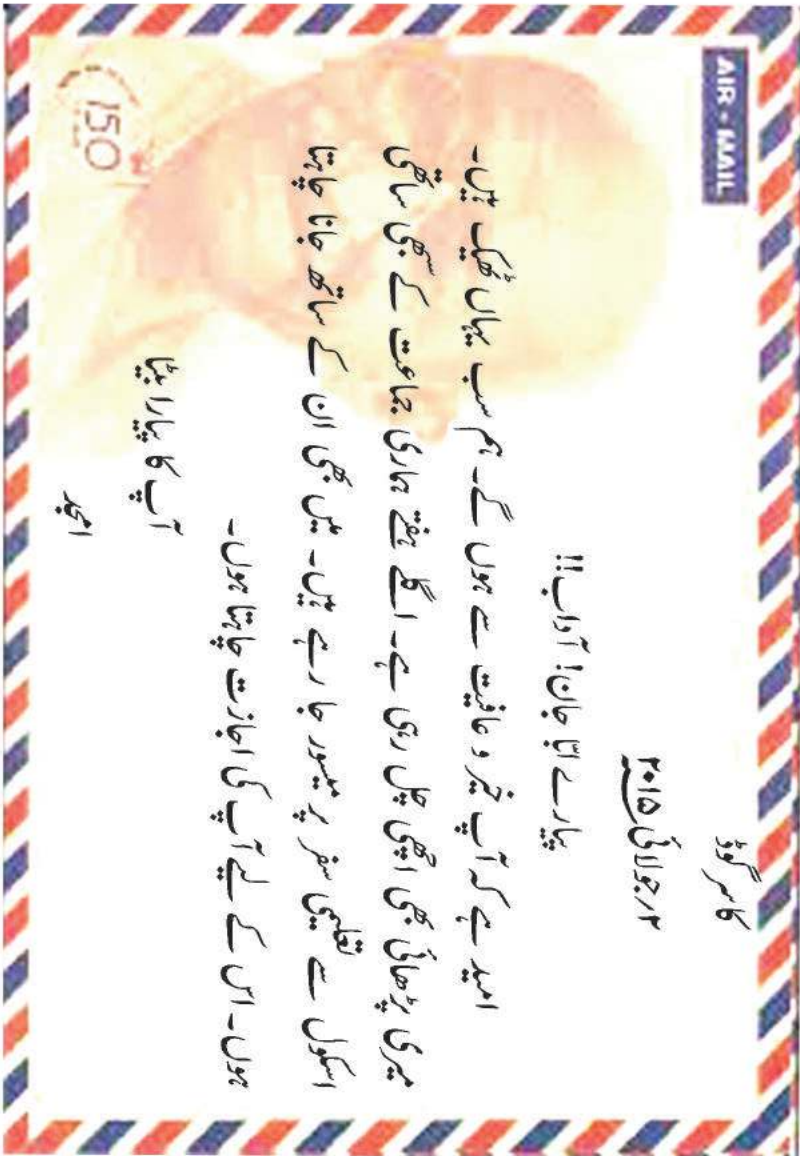 AIR - MAIL
کاسرگوڈ
۲؍جولائی ۲۰۱۵
پیارے ابّا جان! آداب!!
امید ہے کہ آپ خیر و عافیت سے ہوں گے۔ ہم سب یہاں ٹھیک ہیں۔
میری پڑھائی بھی اچھی چل رہی ہے۔ اگلے ہفتے ہماری جماعت کے سبھی ساتھی
اسکول سے تعلیمی سفر پر میسور جا رہے ہیں۔ میں بھی ان کے ساتھ جانا چاہتا
ہوں۔ اس کے لیے آپ کی اجازت چاہتا ہوں۔
آپ کا پیارا بیٹا
امجد
150